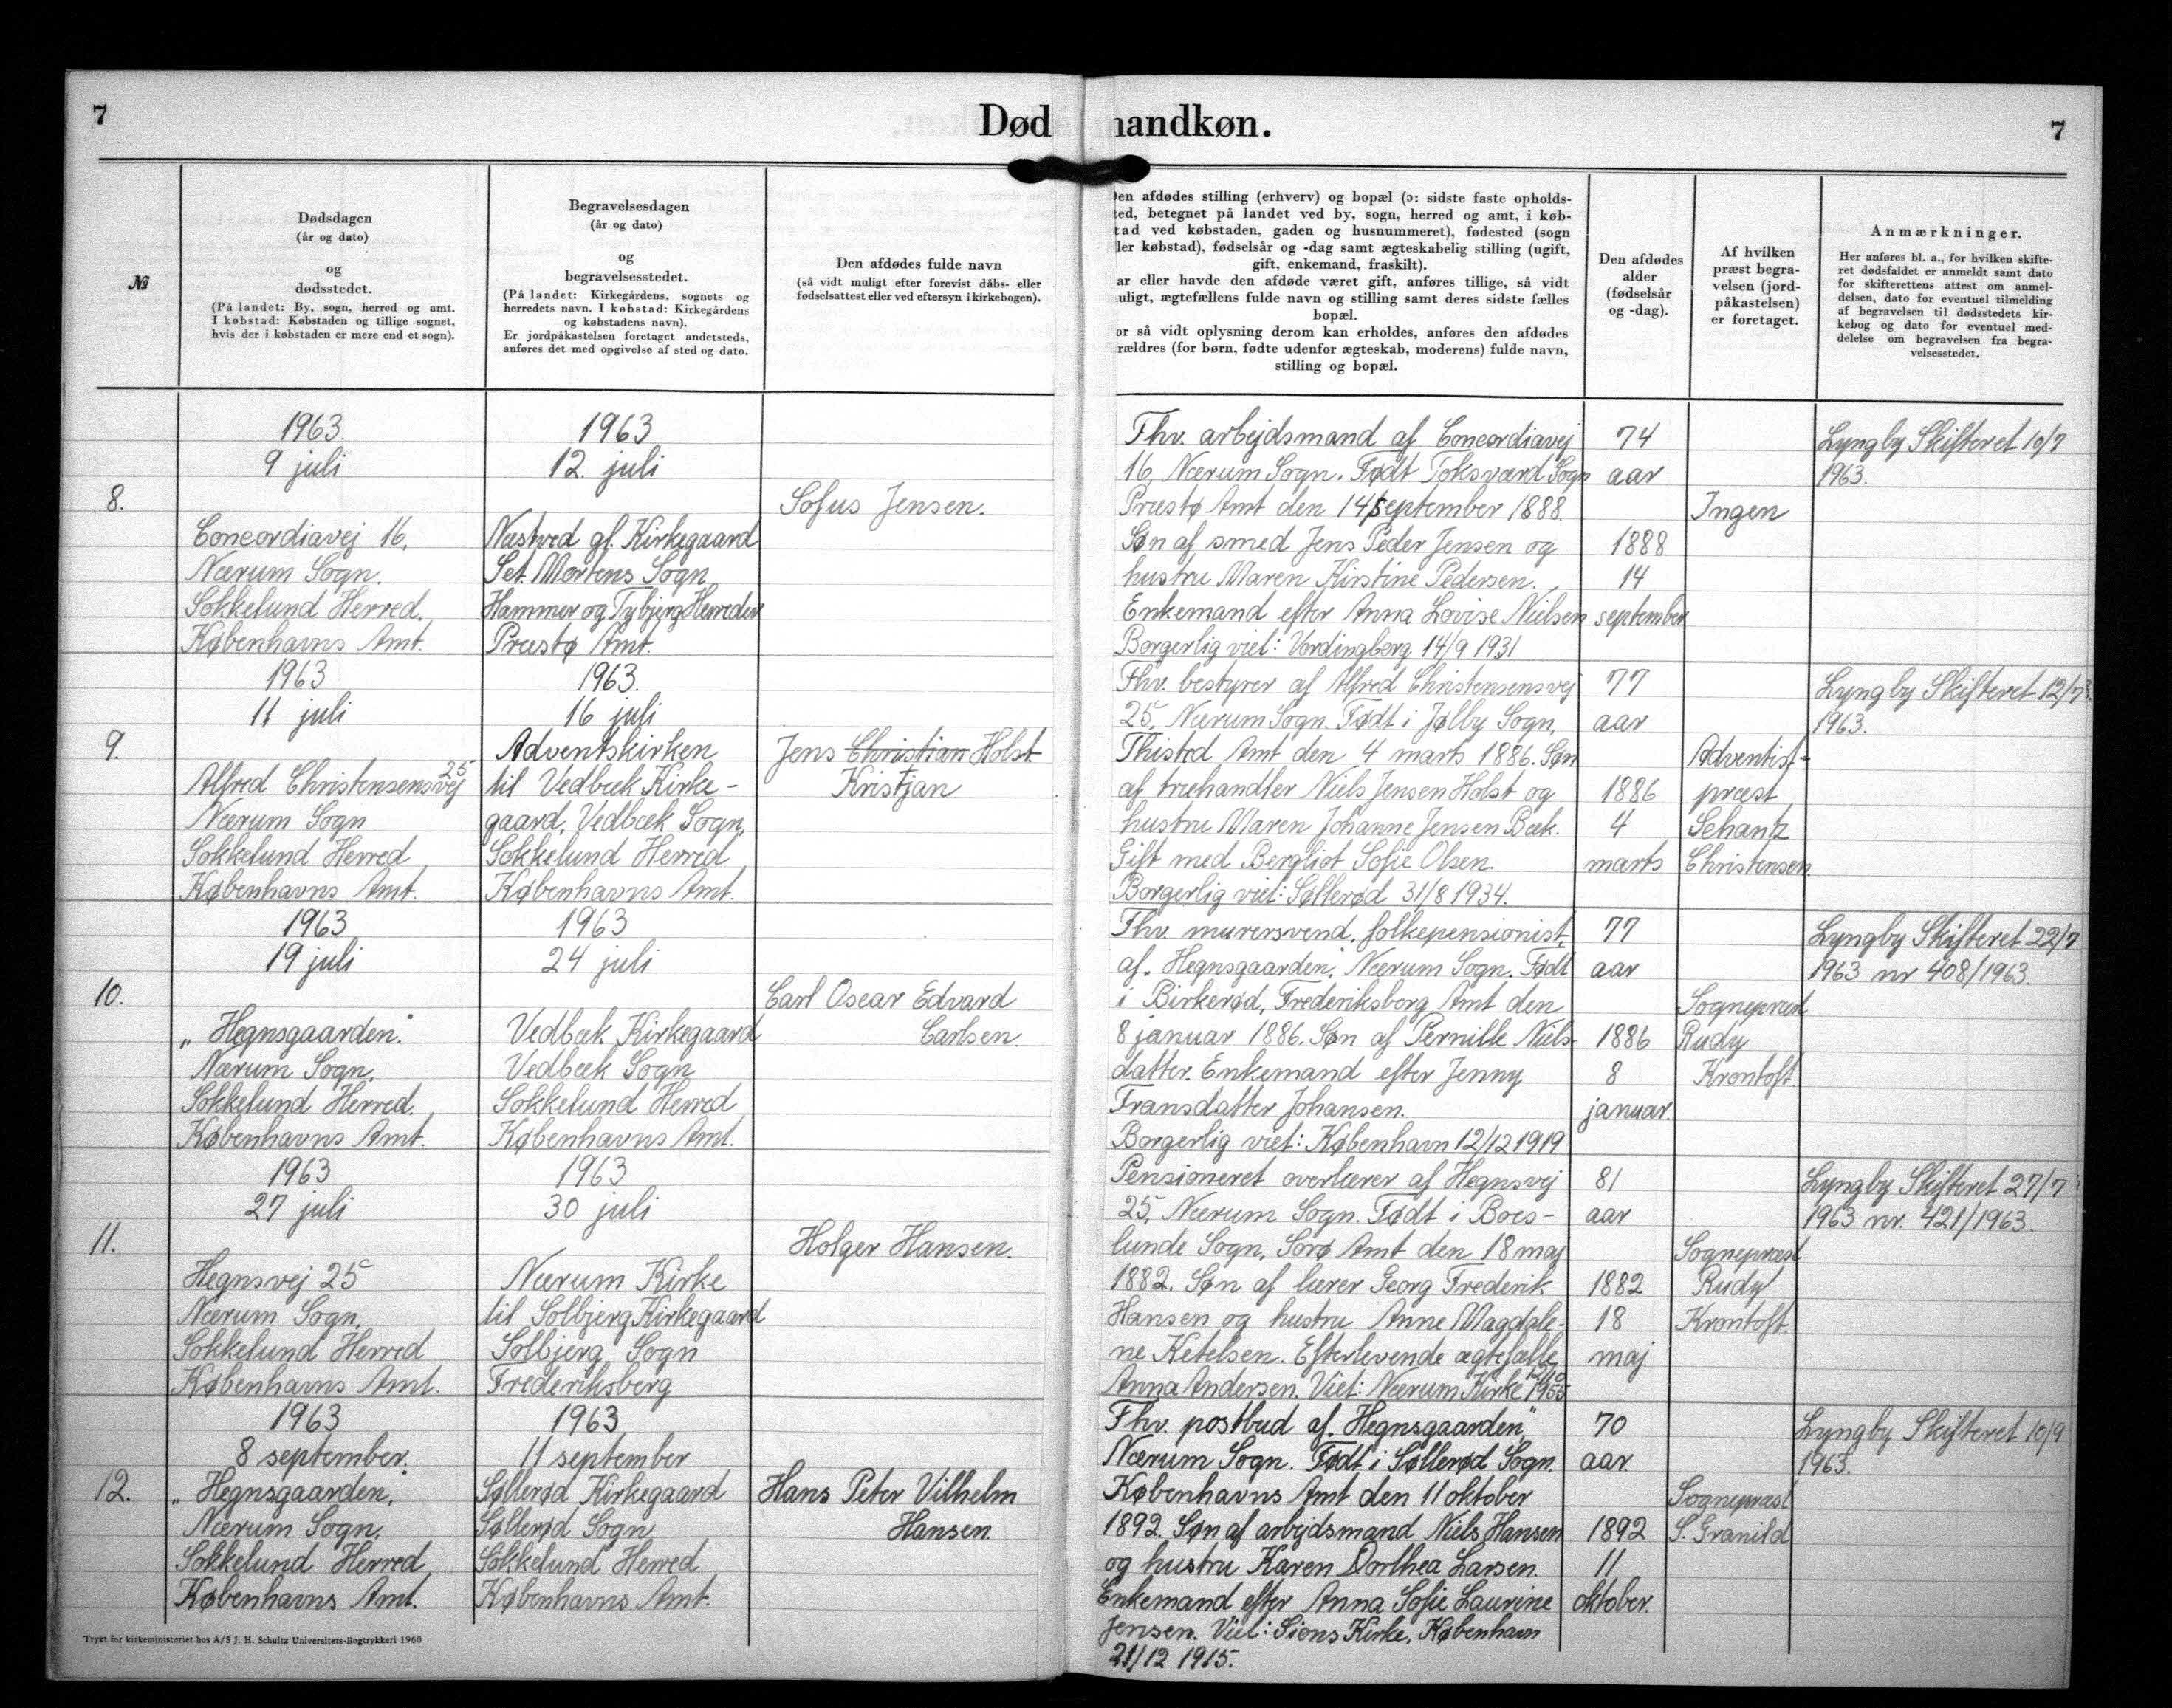 7
Død
handkøn.
7
№
Dødsdagen
(år og dato)
og
dødsstedet.
(På landet: By, sogn, herred og amt.
I købstad: Købstaden og tillige sognet,
hvis der i købstaden er mere end et sogn).
Begravelsesdagen
(år og dato)
og
begravelsesstedet.
(På landet: Kirkegårdens, sognets og
herredets navn. I købstad: Kirkegårdens
og købstadens navn).
Er jordpåkastelsen foretaget andetsteds,
anføres det med opgivelse af sted og dato.
Den afdødes fulde navn
(så vidt muligt efter forevist dåbs- eller
fødselsattest eller ved eftersyn i kirkebogen).
en afdødes stilling (erhverv) og bopæl (ɔ: sidste faste opholds-
ed, betegnet på landet ved by, sogn, herred og amt, i køb-
tad ved købstaden, gaden og husnummeret), fødested (sogn
ler købstad), fødselsår og -dag samt ægteskabelig stilling (ugift,
gift, enkemand, fraskilt).
ar eller havde den afdøde været gift, anføres tillige, så vidt
uligt, ægtefællens fulde navn og stilling samt deres sidste fælles
bopæl.
or så vidt oplysning derom kan erholdes, anføres den afdødes
rældres (for børn, fødte udenfor ægteskab, moderens) fulde navn,
stilling og bopæl.
Den afdødes
alder
(fødselsår
og -dag).
Af hvilken
præst begra-
velsen (jord-
påkastelsen)
er foretaget.
Anmærkninger.
Her anføres bl. a., for hvilken skifte-
ret dødsfaldet er anmeldt samt dato
for skifterettens attest om anmel-
delsen, dato for eventuel tilmelding
af begravelsen til dødsstedets kir-
kebog og dato for eventuel med-
delelse om begravelsen fra begra-
velsesstedet.
8.
1963.
9 juli
Concordiavej 16,
Nærum Sogn.
Sokkelund Herred.
Københavns Amt.
1963
12. juli
Næstved gl. Kirkegaard
Sct. Mortens Sogn
Hammer og Tybjerg Herreder
Præstø Amt.
Sofus Jensen.
Fhv. arbejdsmand af Concordiavej
16, Nærum Sogn. Født Toksværd Sogn
Præstø Amt den 14 september 1888.
Søn af smed Jens Peder Jensen og
hustru Maren Kirstine Pedersen.
Enkemand efter Anna Lovise Nielsen
Borgerlig viet: Vordingborg 14/9 1931
74
aar
1888
14
september
Ingen
Lyngby Skifteret 10/7
1963.
9.
1963
11 juli
Alfred Christensensvej 25
Nærum Sogn
Sokkelund Herred
Københavns Amt.
1963.
16 juli
Adventskirken
til Vedbæk Kirke-
gaard, Vedbæk Sogn,
Sokkelund Herred
Københavns Amt.
Jens Christian Holst
Kristjan
Fhv. bestyrer af Alfred Christensensvej
25, Nærum Sogn. Født i Jølby Sogn,
Thisted Amt den 4 marts 1886. Søn
af træhandler Niels Jensen Holst og
hustru Maren Johanne Jensen Bæk.
Gift med Bergliot Sofie Olsen.
Borgerlig viet: Søllerød 31/8 1934.
77
aar
1886
4
marts
Adventist-
præst
Schantz
Christensen
Lyngby Skifteret 12/7
1963.
10.
1963
19 juli
„Hegnsgaarden."
Nærum Sogn.
Sokkelund Herred.
Københavns Amt.
1963
24 juli
Vedbæk Kirkegaard
Vedbæk Sogn
Sokkelund Herred
Københavns Amt.
Carl Oscar Edvard
Carlsen.
Fhv. murersvend, folkepensionist,
af „Hegnsgaarden", Nærum Sogn. Født
i Birkerød, Frederiksborg Amt den
8 januar 1886. Søn af Pernille Niels-
datter. Enkemand efter Jenny
Fransdatter Johansen.
Borgerlig viet: København 12/12 1919
77
aar
1886
8
januar.
Sognepræst
Rudy
Krontoft.
Lyngby Skifteret 22/7
1963 nr 408/1963.
11.
1963
27 juli
Hegnsvej 25
Nærum Sogn.
Sokkelund Herred
Københavns Amt.
1963
30 juli
Nærum Kirke
til Solbjerg Kirkegaard
Solbjerg Sogn
Frederiksberg
Holger Hansen.
Pensioneret overlærer af Hegnsvej
25, Nærum Sogn. Født i Boes-
lunde Sogn, Sorø Amt den 18 maj
1882. Søn af lærer Georg Frederik
Hansen og hustru Anne Magdale-
ne Ketelsen. Efterlevende ægtefælle
Anna Andersen. Viet: Nærum Kirke 1955
81
aar
1882
18
maj
Sognepræst
Rudy
Krontoft.
Lyngby Skifteret 27/7
1963 nr. 421/1963.
12.
1963
8 september.
„Hegnsgaarden",
Nærum Sogn.
Sokkelund Herred
Københavns Amt.
1963
11 september
Søllerød Kirkegaard
Søllerød Sogn
Sokkelund Herred
Københavns Amt.
Hans Peter Vilhelm
Hansen.
Fhv. postbud af „Hegnsgaarden",
Nærum Sogn. Født i Søllerød Sogn.
Københavns Amt den 11 oktober
1892. Søn af arbejdsmand Niels Hansen
og hustru Karen Dorthea Larsen.
Enkemand efter Anna Sofie Laurine
Jensen. Viet: Sions Kirke, København
21/12 1915.
70
aar.
1892
11
oktober.
Sognepræst
S. Granild
Lyngby Skifteret 10/9
1963.
Trykt for kirkeministeriet hos A/S J. H. Schultz Universitets-Bogtrykkeri 1960